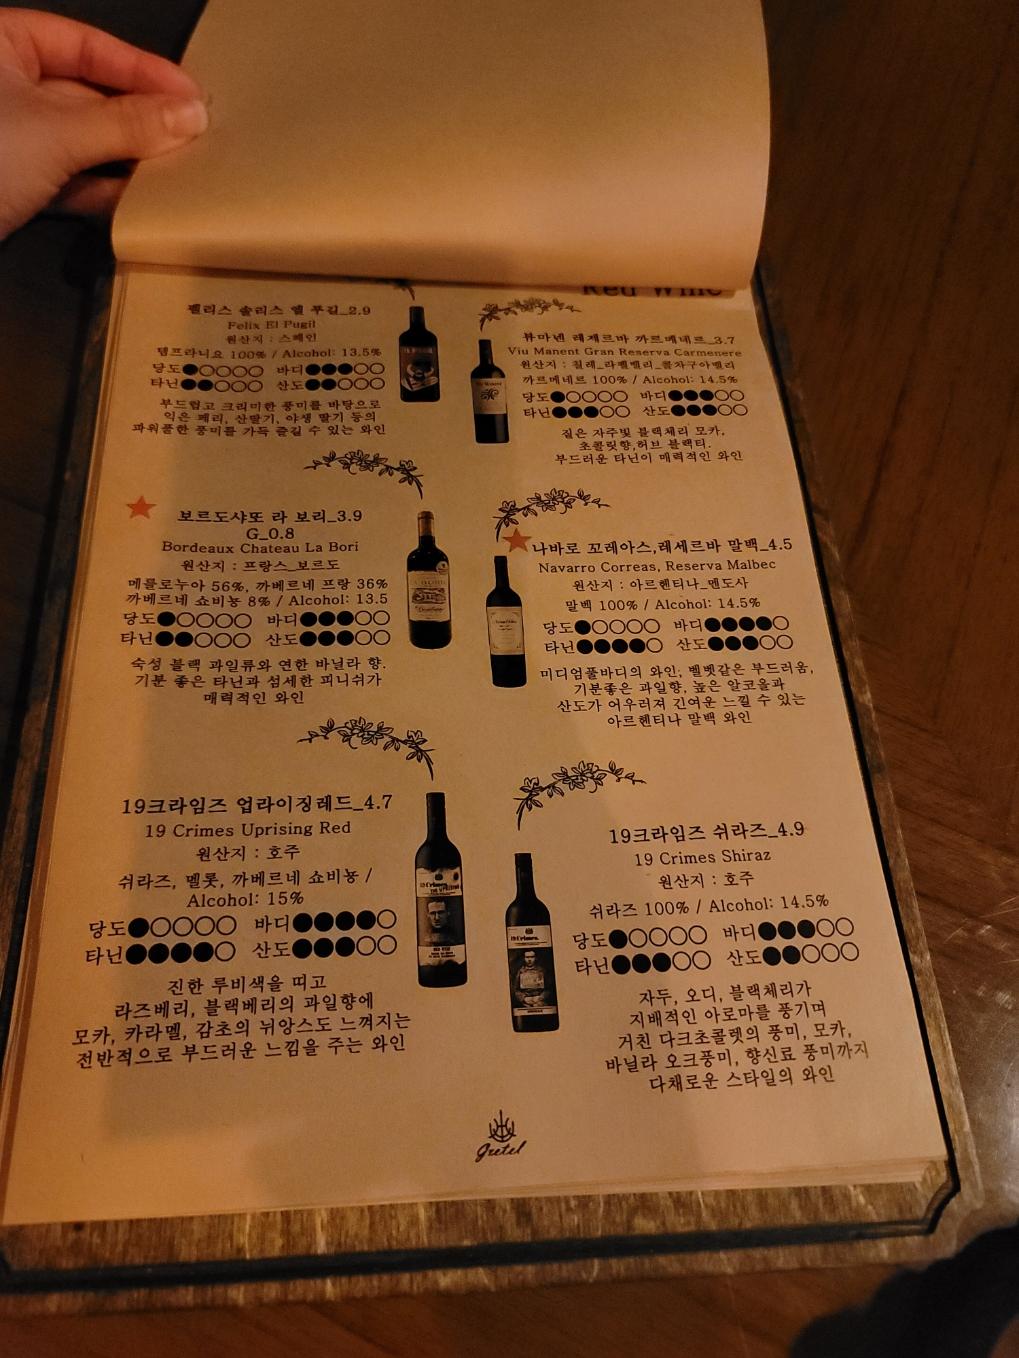 Red Wine
펠리스 솔리스 엘 푸길_2.9
Felix El Pugil
원산지 : 스페인
템프라니요 100% / Alcohol: 13.5%
당도●○○○○ 바디●●●○○
타닌●●○○○ 산도●●●○○
부드럽고 크리미한 풍미를 바탕으로
익은 페리, 산딸기, 야생 딸기 등의
파워풀한 풍미를 가득 즐길 수 있는 와인
뷰마넨 레제르바 까르메네르_3.7
Viu Manent Gran Reserva Carmenere
원산지 : 칠레_라펠밸리_콜차구아밸리
까르메네르 100% / Alcohol: 14.5%
당도●○○○○ 바디●●●○○
타닌●●●○○ 산도●●●○○
짙은 자주빛 블랙체리 모카,
초콜릿향,허브 블랙티.
부드러운 타닌이 매력적인 와인
보르도샤또 라 보리_3.9
G_0.8
Bordeaux Chateau La Bori
원산지 : 프랑스_보르도
메를로누아 56%, 까베르네 프랑 36%
까베르네 쇼비뇽 8% / Alcohol: 13.5
당도●○○○○ 바디●●●○○
타닌●●○○○ 산도●●●○○
숙성 블랙 과일류와 연한 바닐라 향.
기분 좋은 타닌과 섬세한 피니쉬가
매력적인 와인
나바로 꼬레아스,레세르바 말백_4.5
Navarro Correas, Reserva Malbec
원산지 : 아르헨티나_멘도사
말백 100% / Alcohol: 14.5%
당도●○○○○ 바디●●●●○
타닌●●●●○ 산도●●●○○
미디엄풀바디의 와인; 벨벳같은 부드러움,
기분좋은 과일향, 높은 알코올과
산도가 어우러져 긴여운 느낄 수 있는
아르헨티나 말백 와인
19크라임즈 업라이징레드_4.7
19 Crimes Uprising Red
원산지 : 호주
쉬라즈, 멜롯, 까베르네 쇼비뇽 /
Alcohol: 15%
당도●○○○○ 바디●●●●○
타닌●●●●○ 산도●●●○○
진한 루비색을 띠고
라즈베리, 블랙베리의 과일향에
모카, 카라멜, 감초의 뉘앙스도 느껴지는
전반적으로 부드러운 느낌을 주는 와인
19크라임즈 쉬라즈_4.9
19 Crimes Shiraz
원산지 : 호주
쉬라즈 100% / Alcohol: 14.5%
당도●○○○○ 바디●●●○○
타닌●●●○○ 산도●●○○○
자두, 오디, 블랙체리가
지배적인 아로마를 풍기며
거친 다크초콜렛의 풍미, 모카,
바닐라 오크풍미, 향신료 풍미까지
다채로운 스타일의 와인
19 Crimes
19 Crimes.
gretel